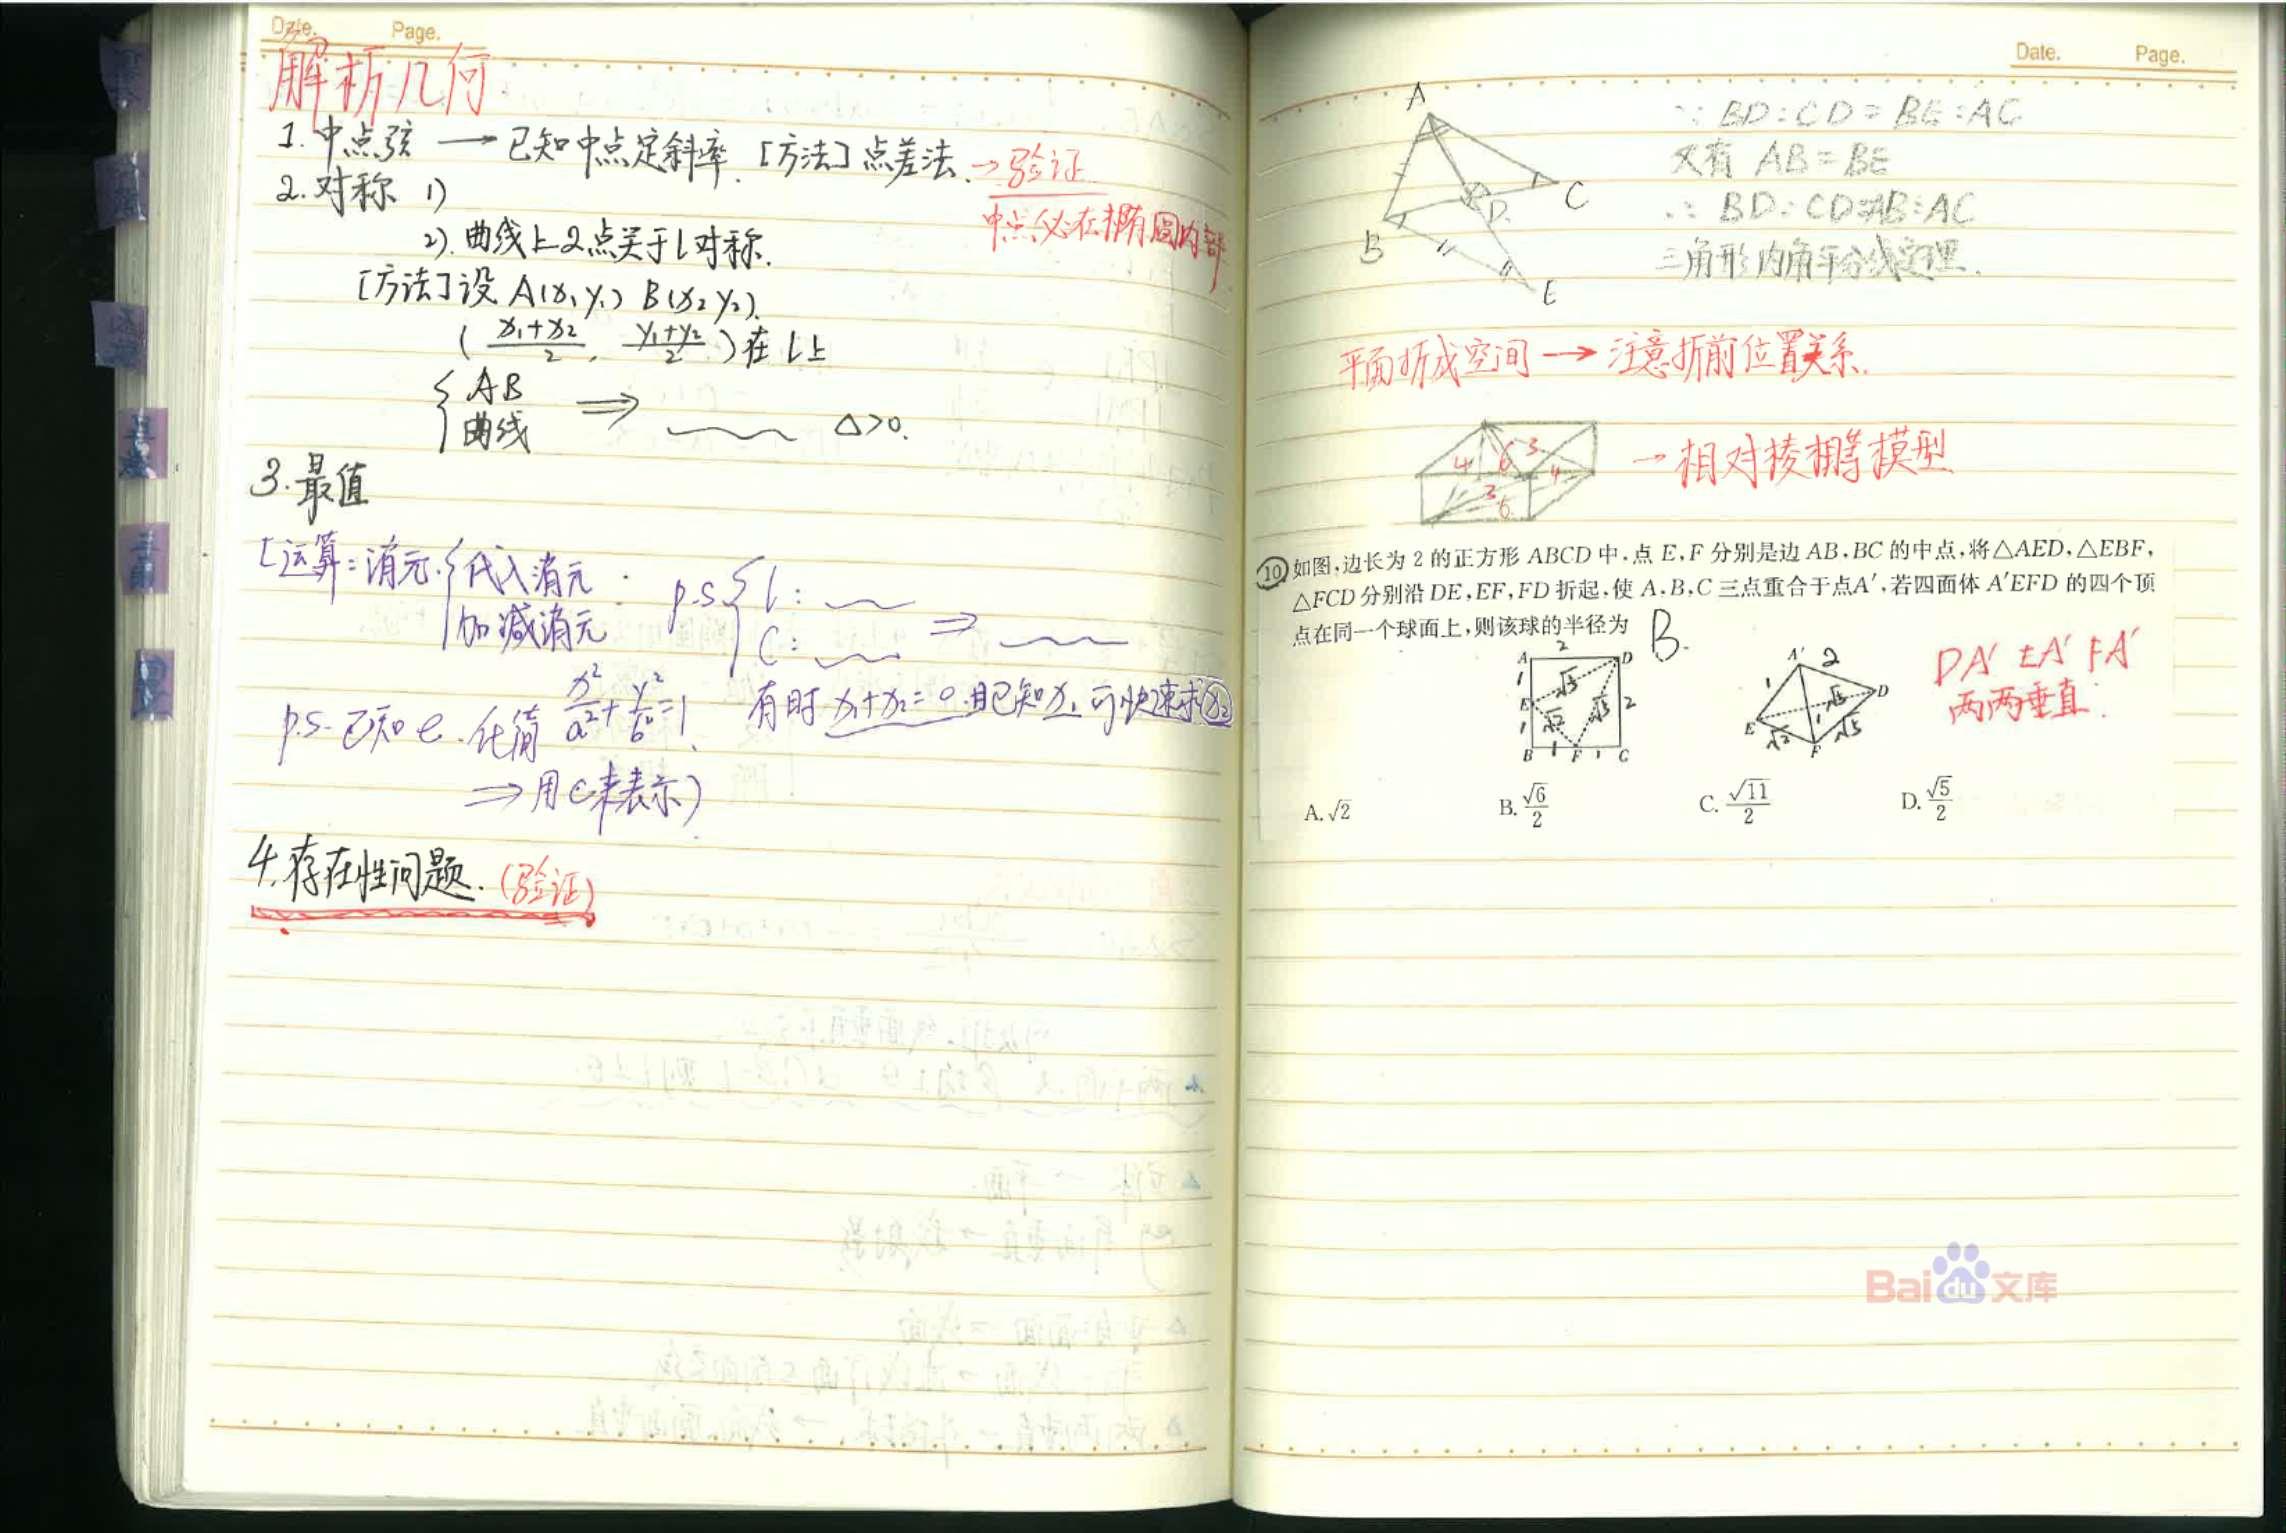 Date. Page.
解析几何
1.中点弦 → 已知中点定斜率.[方法]点差法.→验证
中点必在椭圆内部
2.对称 1)
2).曲线上2点关于l对称.
[方法]设 A(x₁y₁) B(x₂y₂).
(x₁+x₂/2, y₁+y₂/2)在l上
{AB
曲线 ⇒ Δ>0.
3.最值
[运算:消元.{代入消元
加减消元
p.s{l:
C: ⇒
p.s.已知e.化简 x²/a²+y²/b²=1.
⇒用c来表示)
有时x₁+x₂=0.且已知x₁可快速求x₂
4.存在性问题.(验证)
Date. Page.
A
B
C
D
E
∵ BD:CD=BE:AC
又有 AB=BE
∴ BD:CD=AB:AC
三角形内角平分线定理.
平面折成空间→注意折前位置关系.
4 6 3 4
3
6
→相对棱相等模型
10 如图,边长为 2 的正方形 ABCD 中,点 E,F 分别是边 AB,BC 的中点,将△AED,△EBF,
△FCD 分别沿 DE,EF,FD 折起,使 A,B,C 三点重合于点A′,若四面体 A′EFD 的四个顶
点在同一个球面上,则该球的半径为 B.
A 2 D
1 √5
E √2 √5 2
1
B 1 F 1 C
A′ 2
1 √5 D
E 1
√2 F √5
DA′ EA′ FA′
两两垂直.
A.√2 B.√6/2 C.√11/2 D.√5/2
Baidu文库